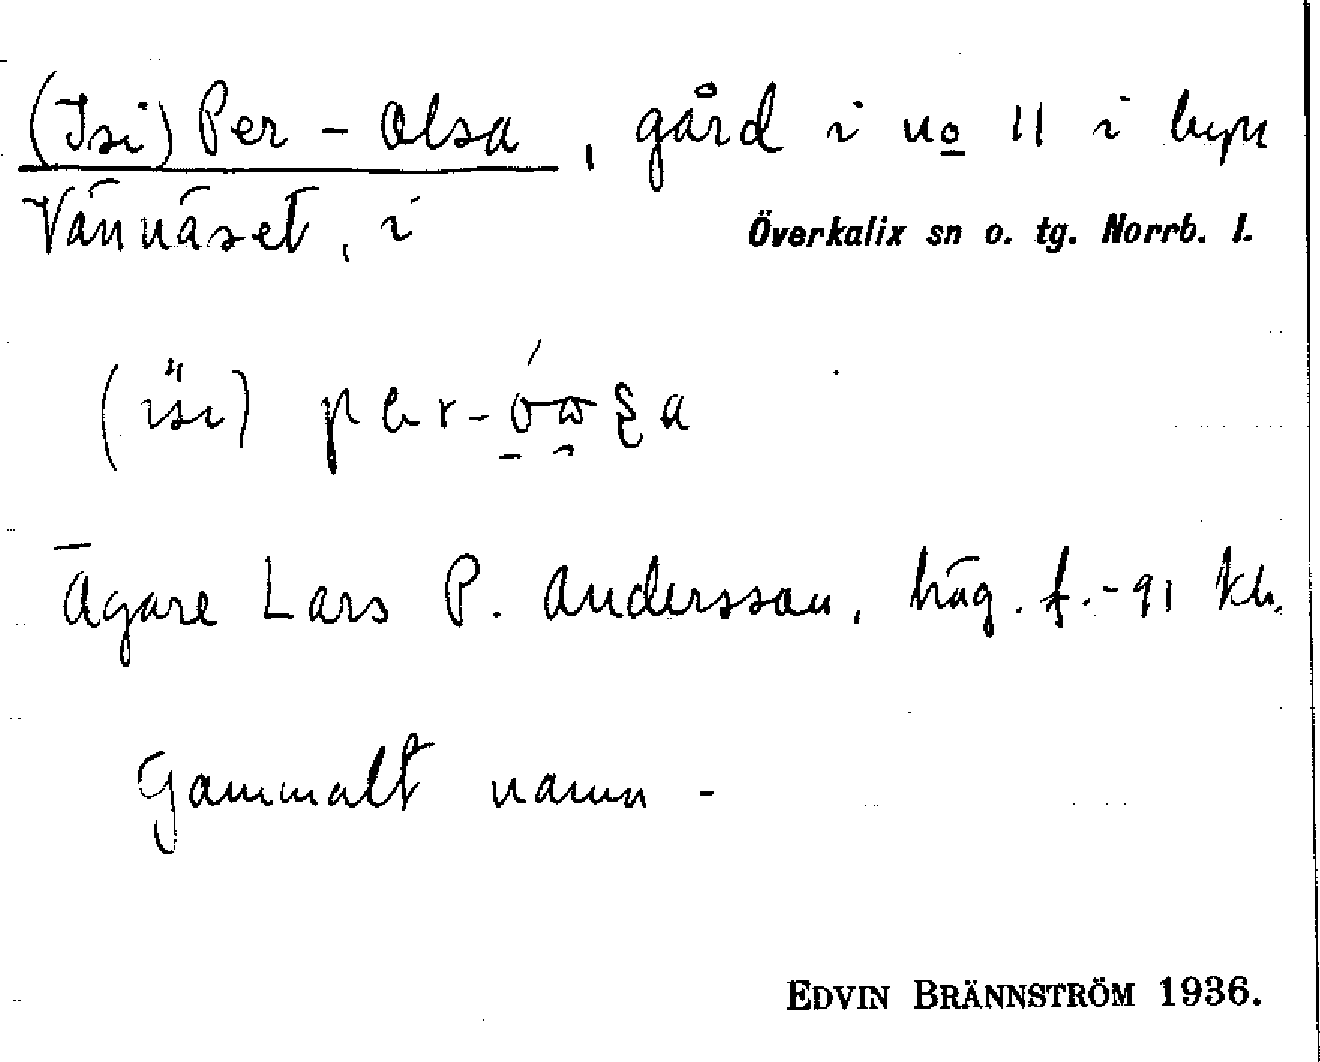 (Isi) Per - Olsa, gård i no 11 i byn
Vännäset, i Överkalix sn o. tg. Norrb. l.
(isi)
Ägare Lars P. Andersson, häg. f. -91 kh.
Gammalt namn -
EDVIN BRÄNNSTRÖM 1936.